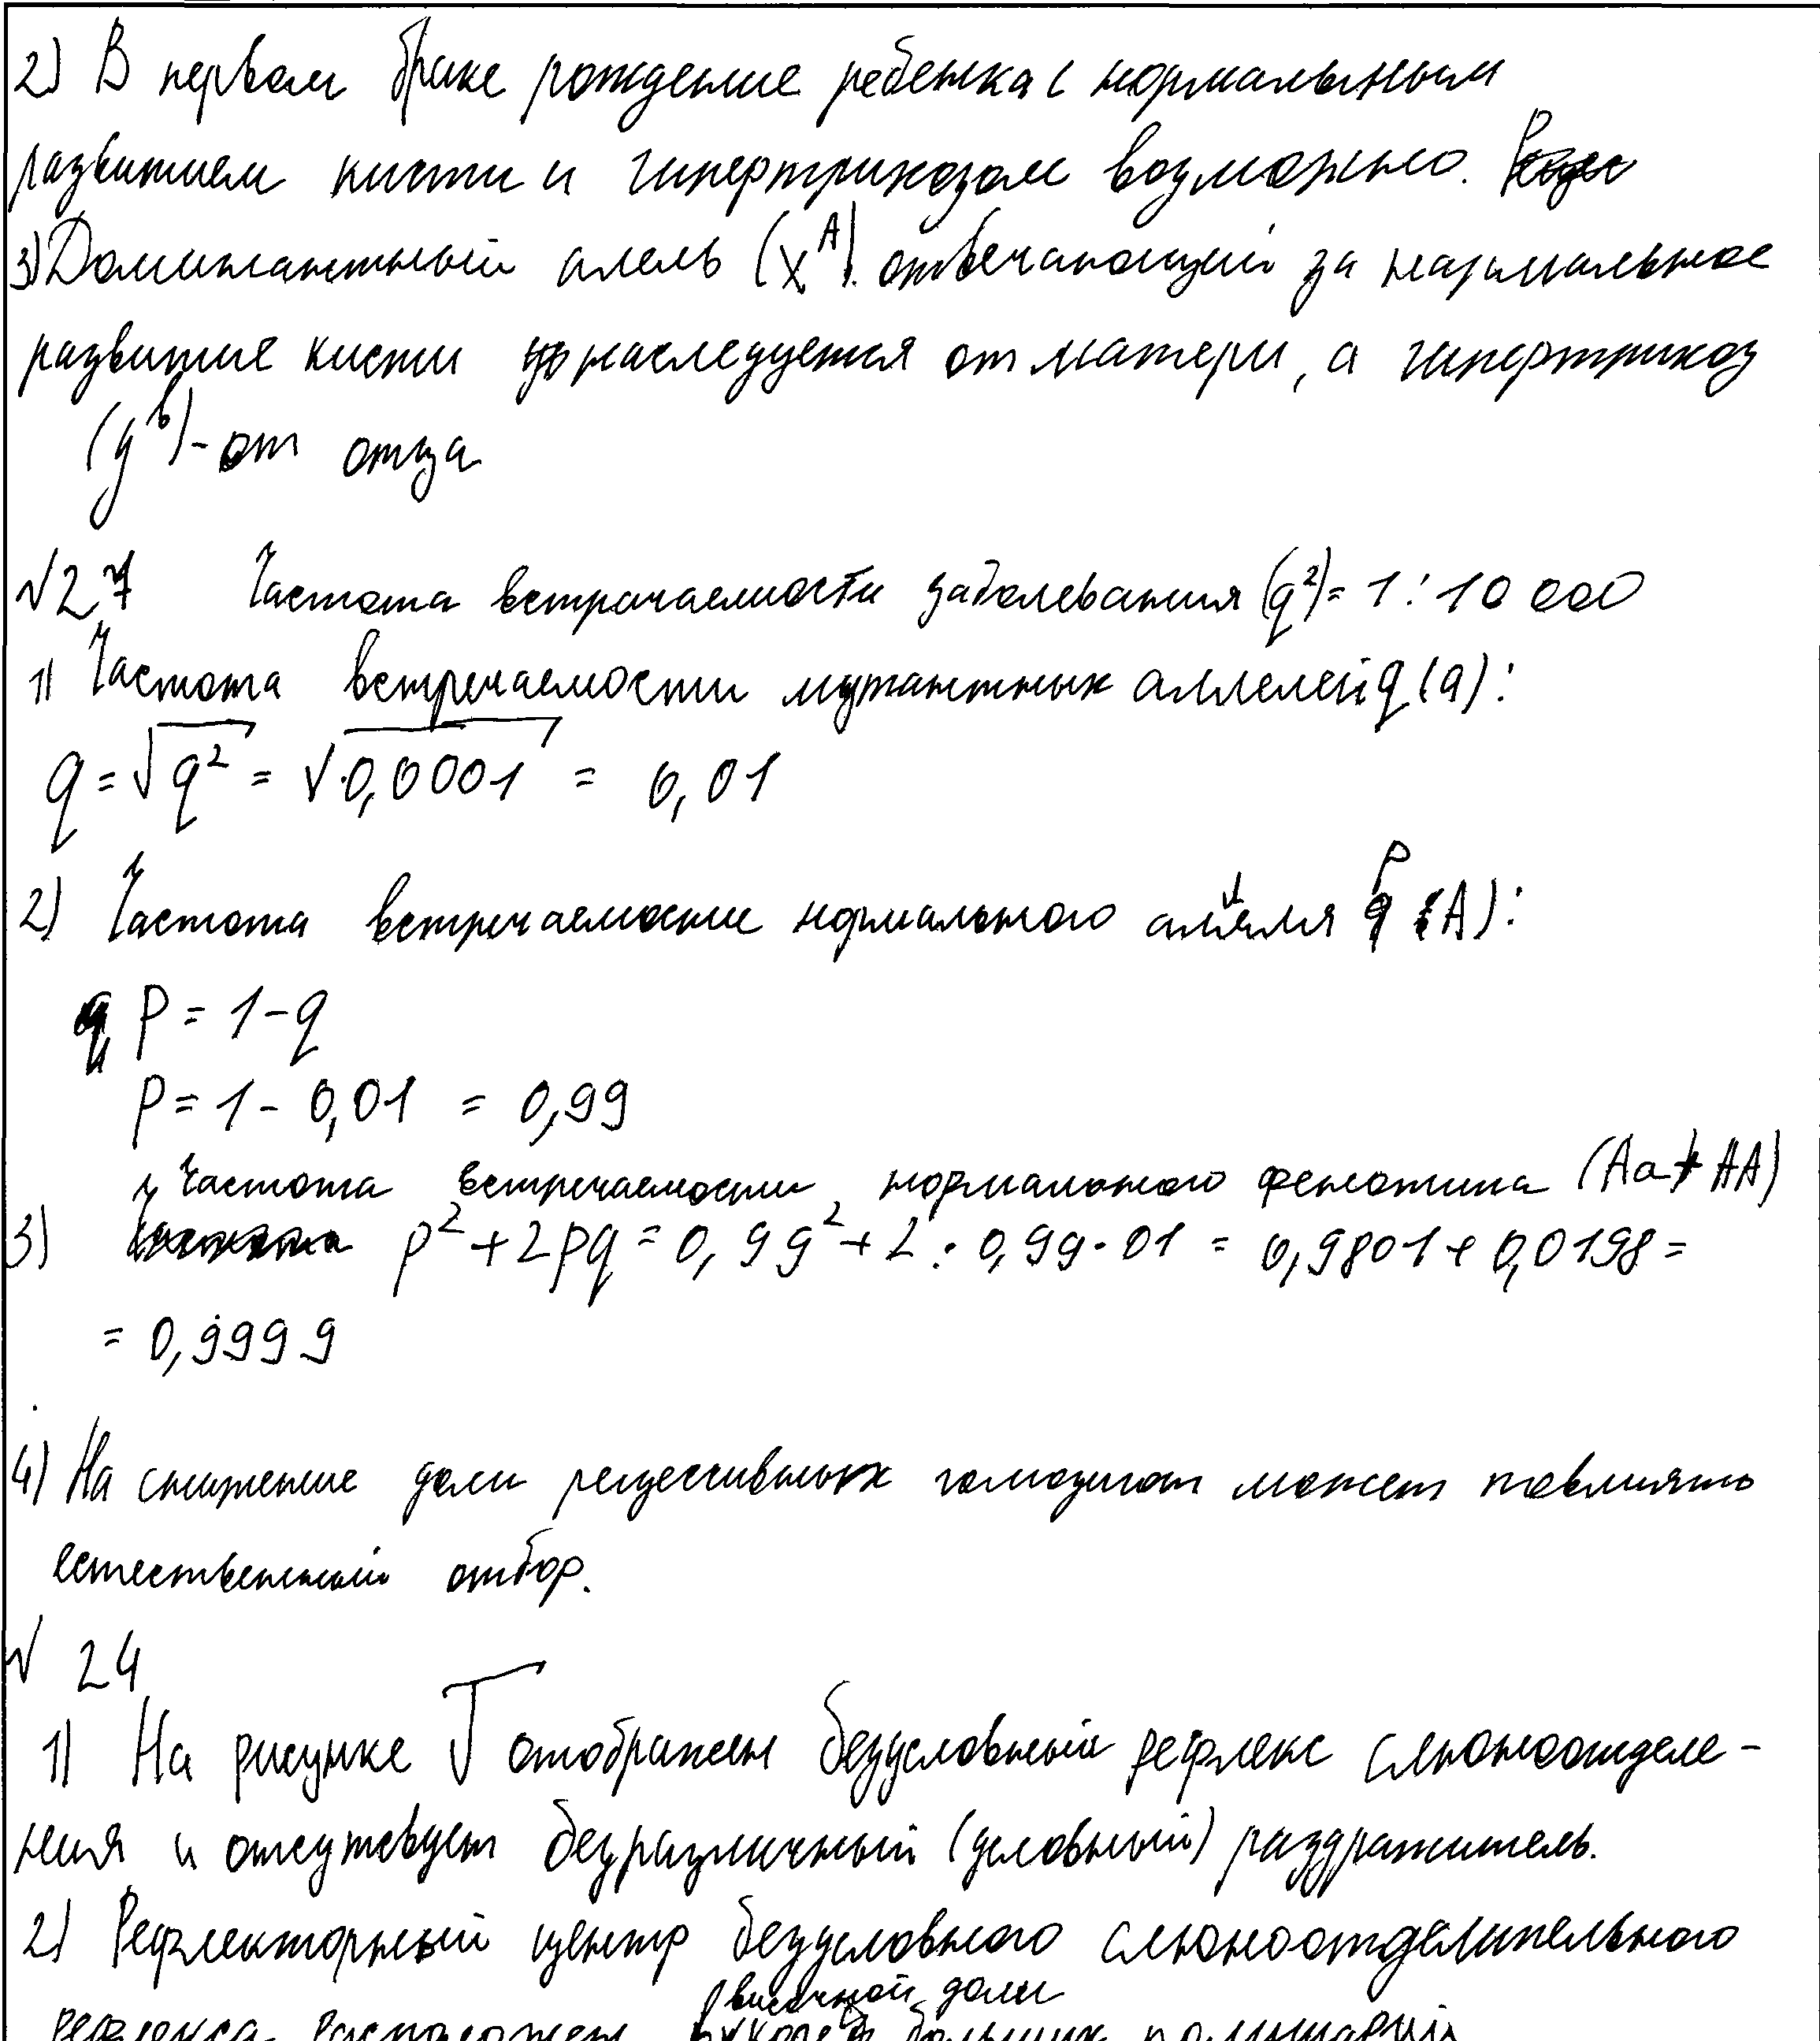 2) В первом браке рождение ребенка с нормальным
развитием кисти и гипертрихозом возможно.
3) Доминантный алель (X^A), отвечающий за нармальное
развитие кисти наследуется от матери, а гипертрихоз
(y^b) - от отца
√27 Частота встричаемости заболевания (q²) = 1 : 10 000
1) Частота встречаемости мутантных аллелей q (a):
q = √q² = √0,0001 = 0,01
2) Частота встречаемости нормального аллеля p (A):
p = 1 - q
p = 1 - 0,01 = 0,99
Частота встречаемости нормального фенотипа (Aa + AA)
3) p² + 2pq = 0,99² + 2 · 0,99 · 01 = 0,9801 + 0,0198 =
= 0,9999
4) На снижение доли рецессивных гомозигот может повлиять
естественный отбор.
√ 24
1) На рисунке отображен безусловный рефлекс слюноотделе-
ния и отсутсвует безразличный (условный) раздражитель.
2) Рефлекторный центр безусловного слюноотделительного
височной доли
рефлекса расположен в коре больших полушарий